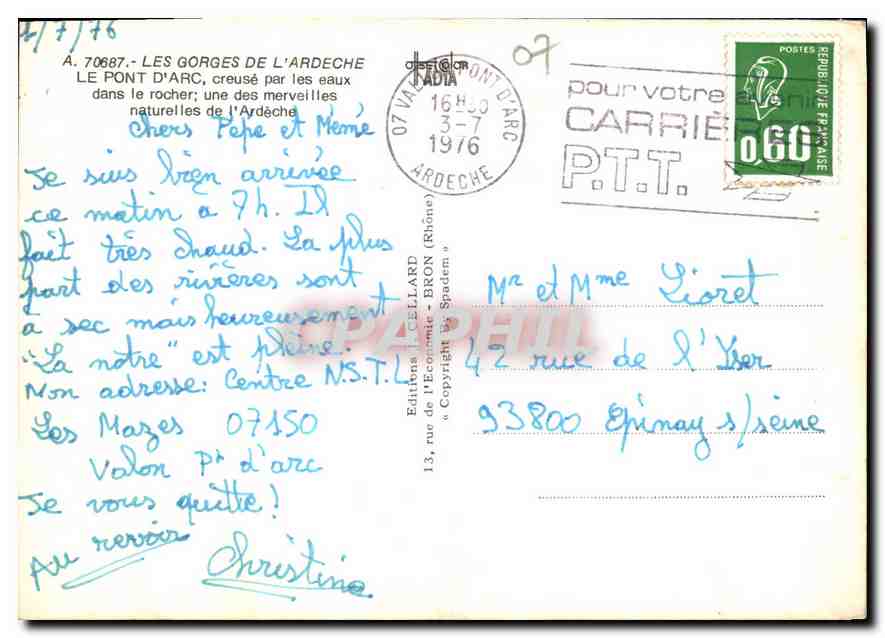 1/7/76
A. 70687.- LES GORGES DE L'ARDECHE
LE PONT D'ARC, creusé par les eaux
dans le rocher; une des merveilles
naturelles de l'Ardèche
Chers Pépé et Mémé
Je suis bien arrivée
ce matin à 7h. Il
fait très chaud. La plus
part des rivières sont
à sec mais heureusement
"La notre" est pleine.
Mon adresse: Centre N.S.T.L
Les Mazes 07150
Valon Pt d'arc
Je vous quitte!
Au revoir
Christine
07
PONT D'ARC
16H
3-7
1976
ARDECHE
pour votre avenir
CARRIÈRES
P.T.T.
POSTES
REPUBLIQUE FRANÇAISE
0,60
Editions J. CELLARD
13, rue de l'Economie - BRON (Rhône)
« Copyright By Spadem »
CPAPHIL
Mr et Mme Lioret
42 rue de l'Yser
93800 Epinay s/seine